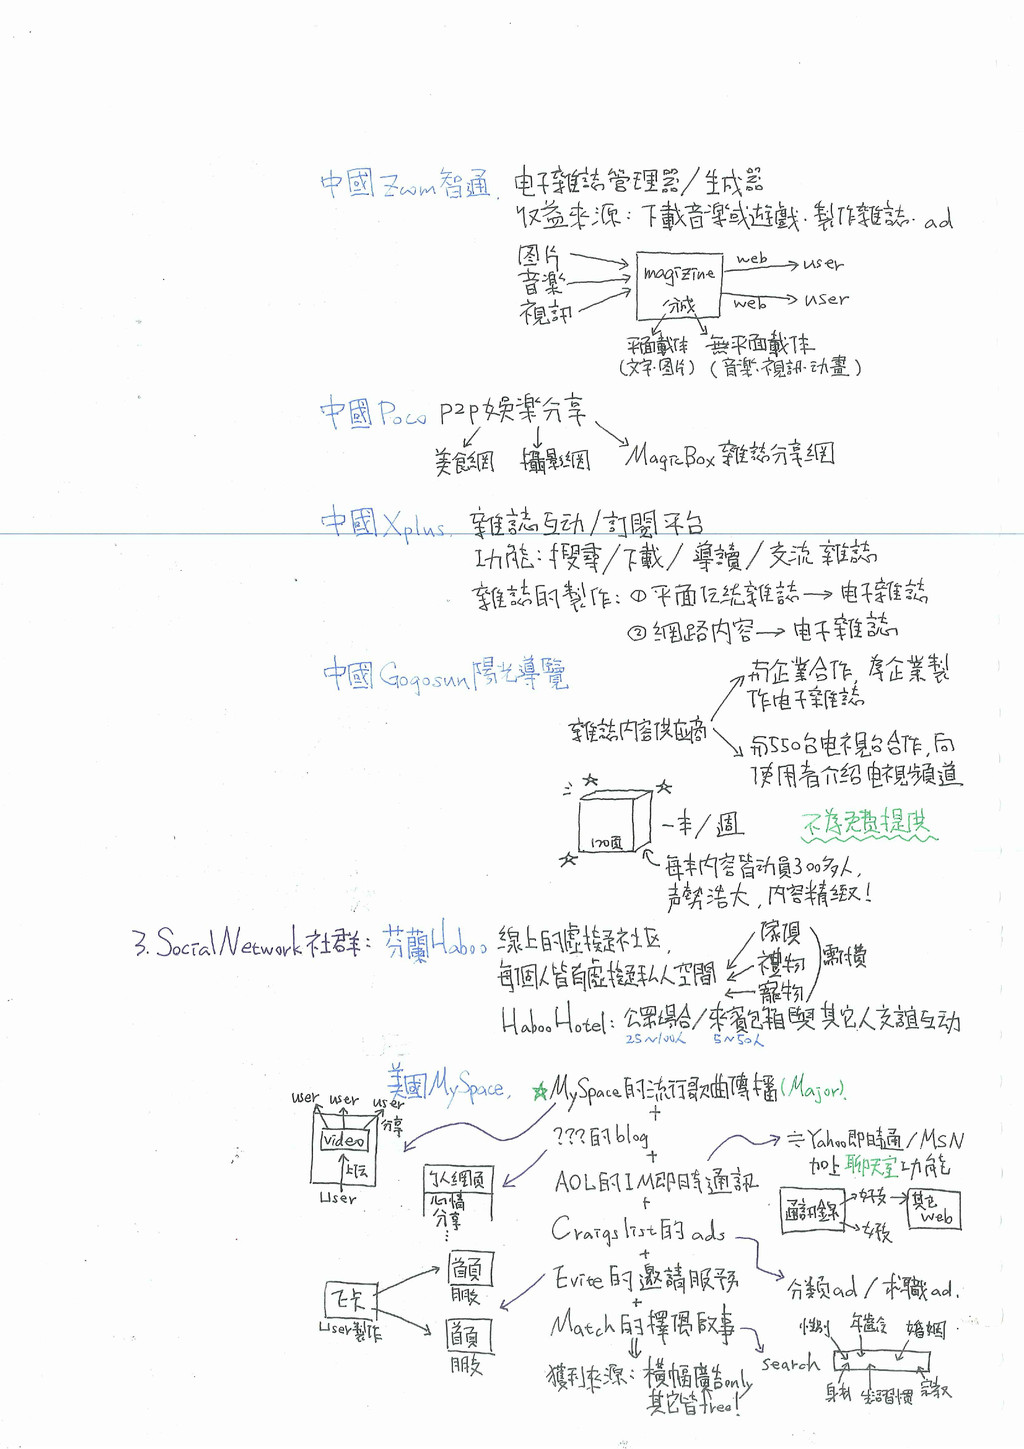 中國Zcom智通. 电子雜誌管理器/生成器
收益來源: 下載音楽或遊戲·製作雜誌·ad
图片
音樂
視訊
magizine
分成
web
user
web
user
平面載体
(文字·图片)
無平面載体
(音楽·視訊·动畫)
中國Poco P2P娛楽分享
美食網 攝影網 MagicBox雜誌分享網
中國Xplus. 雜誌互动/訂閱平台
功能: 搜尋/下載/導讀/交流雜誌
雜誌的製作: ①平面传統雜誌→电子雜誌
②網路内容→电子雜誌
中國Gogosun陽光導覽
雜誌内容供应商
与企業合作, 為企業製
作电子雜誌
与550台电視台合作, 向
使用者介紹电視頻道
120頁
一本/週
不為免費提供
每本内容皆动員300多人,
声勢浩大, 内容精緻!
3. Social Network社群: 芬蘭Haboo 線上的虛擬社区,
每個人皆有虛擬私人空間
傢俱
禮物
寵物
需購
Haboo Hotel: 公眾場合/來賓包箱與其它人交誼互动
25~100人 5~50人
美國MySpace. ☆MySpace的流行歌曲傳播(Major).
+
???的blog
+
AOL的IM即時通訊
+
Craigslist的ads
+
Evite的邀請服務
+
Match的擇偶啟事
獲利來源: 橫幅廣告only
其它皆free!
user user user
分享
video
上传
User
個人網頁
心情
分享
⋮
≒Yahoo即時通/MSN
加上聊天室功能
通訊錄
好友
好友
其它
web
分類ad/求職ad.
飞卡
User製作
首頁
朋友
首頁
朋友
search
性别 年齡 婚姻
身材 生活習慣 宗教